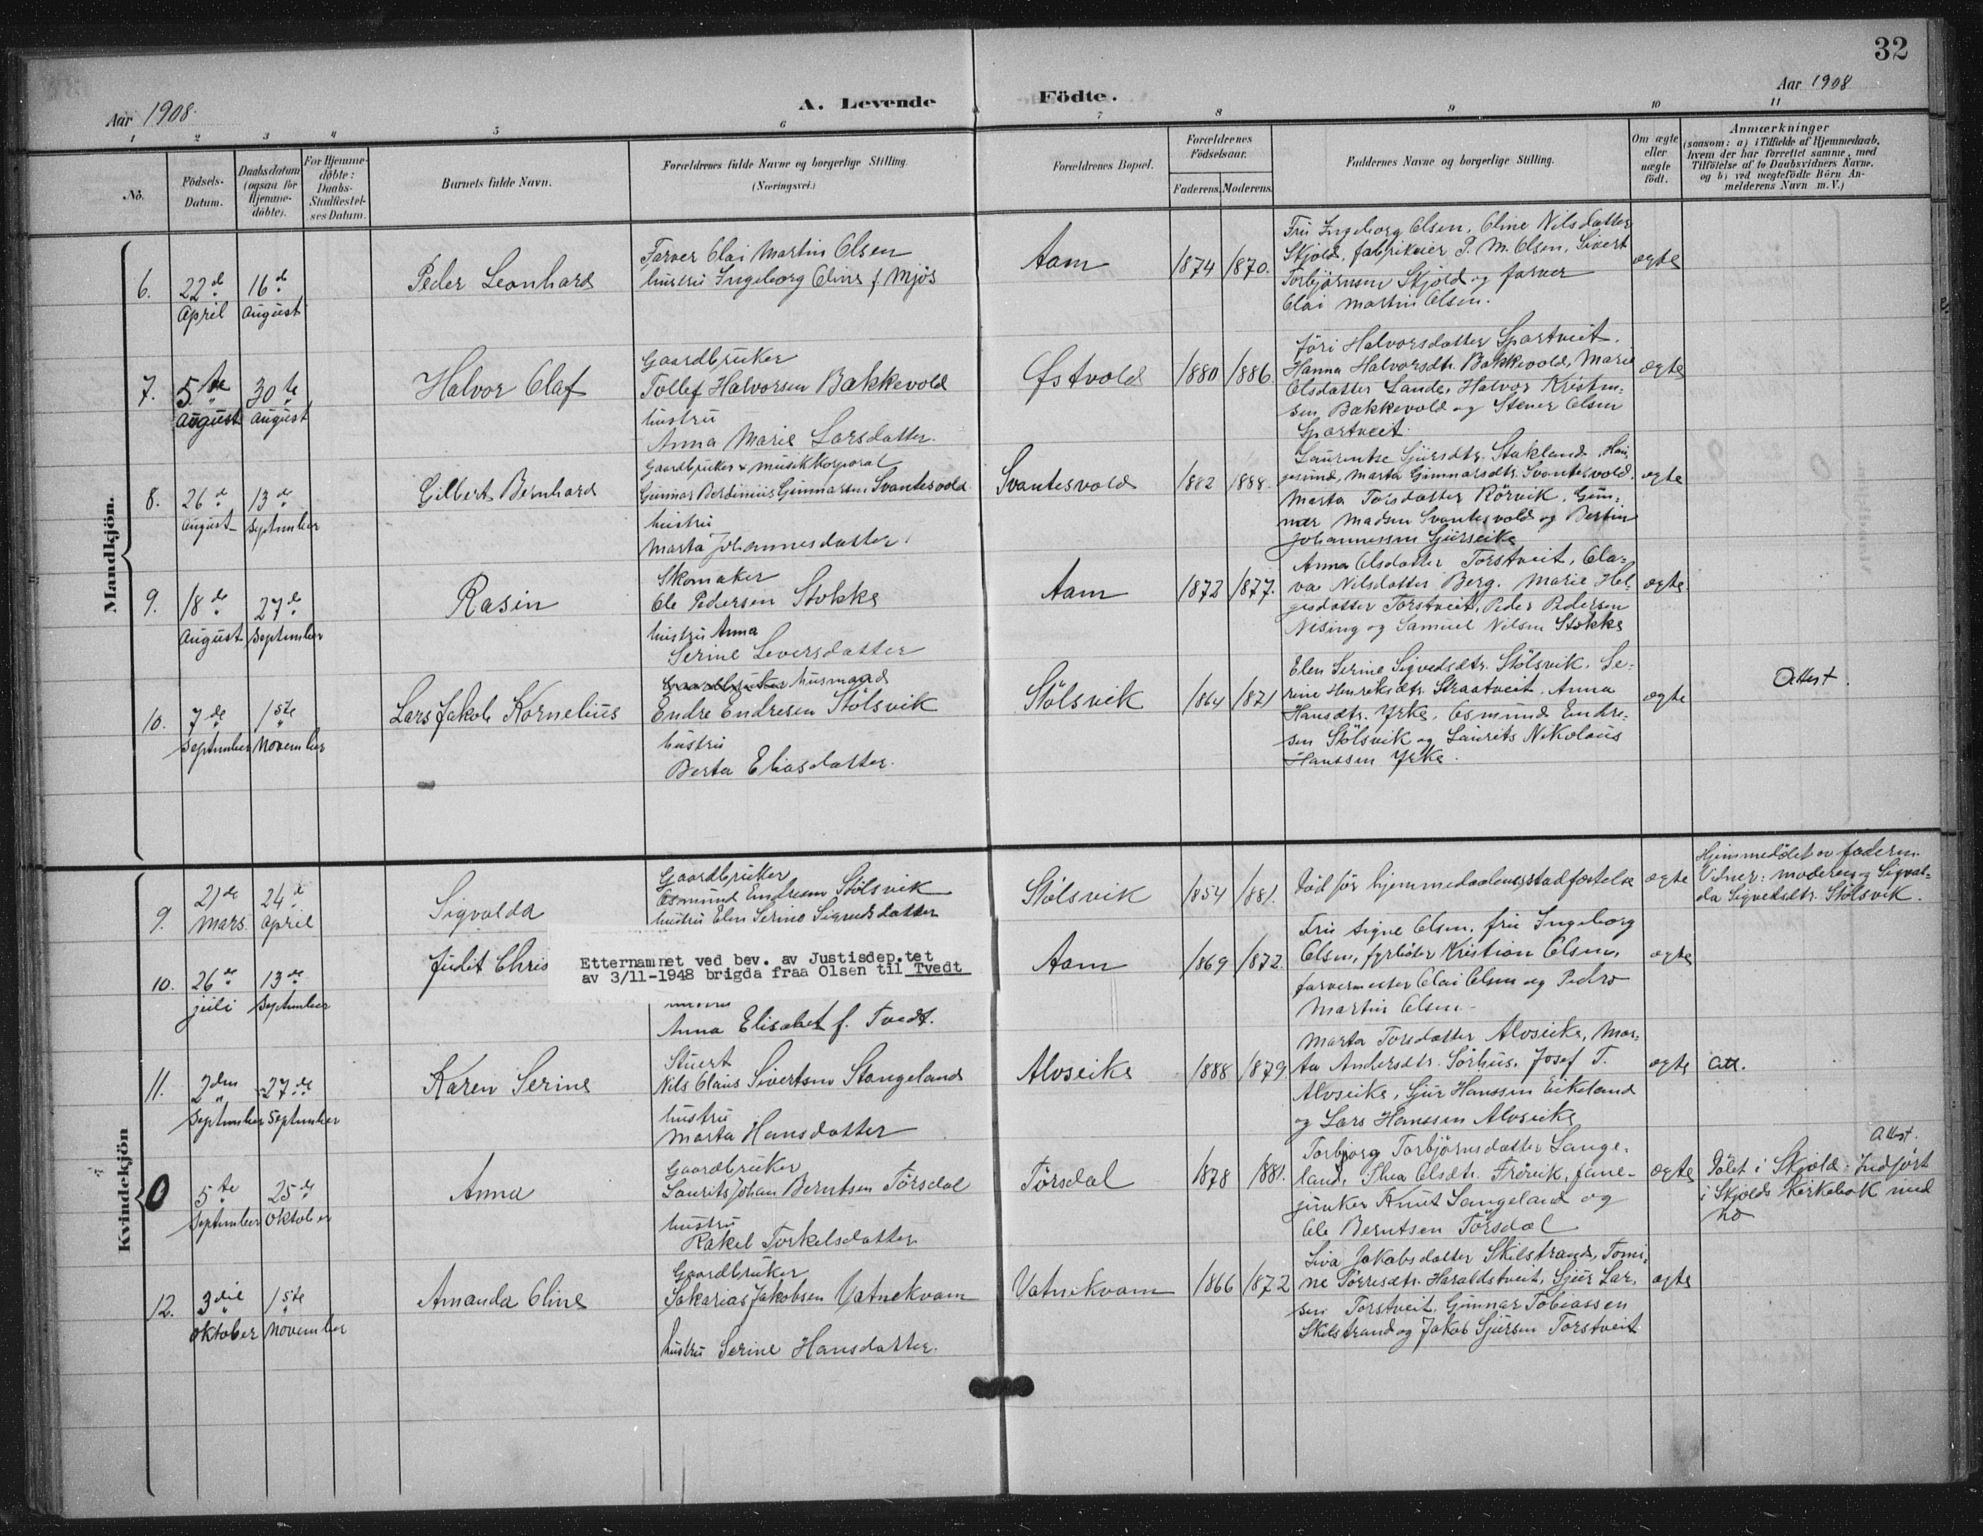 32
Aar 1908.
A. Levende
Födte.
Aar 1908
1
2
3
4
5
6
7
8
9
10
11
No.
Födsels-
Datum.
Daabsdatum
(ogsaa for
Hjemme-
döbte).
For Hjemme-
döbte:
Daabs-
Stadfæstel-
ses Datum.
Barnets fulde Navn.
Forældrenes fulde Navne og borgerlige Stilling.
(Næringsvei.)
Forældrenes Bopæl.
Forældrenes
Födselsaar.
Faderens.
Moderens.
Faddernes Navne og borgerlige Stilling.
Om ægte
eller
uægte
födt.
Anmærkninger
(saasom: a) i Tilfælde af Hjemmedaab,
hvem der har forrettet samme, med
Tilföielse af to Daabsvidners Navne,
og b) ved uægtefödte Börn An-
melderens Navn m. V.)
Mandkjön.
6.
22de
April
16de
August
Peder Leonhard
Farver Olai Martin Olsen
hustru Ingeborg Oline f. Mjøs
Aam
1874
1870.
Fru Ingeborg Olsen, Oline Nilsdatter
Skjold, fabrikeier P. M. Olsen, Sivert
Torbjørnsen Skjold og farver
Olai Martin Olsen.
ægte
7.
5te
August
30te
August
Halvor Olaf
Gaardbruker
Tollef Halvorsen Bakkevold
hustru
Anna Marie Larsdatter.
Østvold
1880
1886.
Jøri Halvorsdatter Spartveit.
Hanna Halvorsdtr. Bakkevold, Marie
Olsdatter Lande, Halvor Kristen-
sen Bakkevold og Stener Olsen
Spartveit.
ægte
8.
26de
August
13de
September
Gilbert Bernhard
Gaardbruker & musikkorporal
Gunnar Berdinius Gunnarsen Svantesvold
hustru
Marta Johannesdatter.
Svantesvold
1882
1888.
Laurentse Sjursdtr. Stakland, Hau-
gesund, Marta Gunnarsdtr. Svantesvold.
Marta Torsdatter Rörvik, Gun-
nar Madsen Svantesvold og Bertin
Johannessen Gjerseike
ægte
9.
18de
August
27de
September
Rasin
Skomaker
Ole Pedersen Stokke
hustru Anna
Serine Seversdatter
Aam
1872
1877.
Anna Olsdatter Torstveit, Ola-
va Nilsdatter Berg. Marie Hel-
gesdatter Torstveit, Peder Pedersen
Nising og Samuel Nilsen Stokke
ægte.
10.
7de
September
1ste
November
Lars Jakob Kornelius
Gaardbruker husmand
Endre Endresen Stölsvik
hustru
Berta Eliasdatter.
Stölsvik
1864
1871
Elen Serine Sigvedsdtr. Stölsvik. Se-
rine Henriksdtr. Straatveit, Anna
Hansdtr. Yrke, Osmund Endre-
sen Stölsvik og Laurits Nikolaus
Hanssen Yrke.
ægte
Attest.
Kvindekjön
9.
21de
Mars
24de
April
Sigvalda
Gaardbruker
Osmund Endresen Stölsvik
hustru Elen Serine Sigvedsdatter
Stölsvik
1854
1881.
Död før hjemmedaabens stadfæstelse
ægte
Hjemmedöbt av faderen.
Vidner: moderen og Sigval-
da Sigvedsdtr. Stölsvik.
10.
26de
juli
13de
September
Judit Chris
Etternamnet ved bev. av Justisdep.tet
av 3/11-1948 brigda fraa Olsen til Tvedt
hustru
Anna Elisabet f. Tvedt.
Aam
1869
1872.
Fru Signe Olsen, fru Ingeborg
Olsen, fyrböter Kristian Olsen,
farvermester Olai Olsen og Pedro
Martin Olsen.
ægte
11.
2den
September
27de
September
Karen Serine
Stuert
Nils Olaus Sivertsen Stangeland
hustru
Marta Hansdatter
Alvseike
1888
1879.
Marta Torsdatter Alvseike, Mar-
ta Andersdtr. Sörhus, Josef T.
Alvseike, Sjur Hanssen Eikeland
og Lars Hanssen Alvseike
ægte
Att.
0
5te
September
25de
Oktober
Anna
Gaardbruker
Laurits Johan Berntsen Törsdal
hustru
Rakel Torkelsdatter
Törsdal
1878
1881.
Torbjorg Torbjörnsdatter Lange-
land, Thea Olsdtr. Frövik, fane-
junker Knut Langeland og
Ole Berntsen Törsdal
ægte
Attest.
Döbt i Skjold. Indfört
i Skjolds kirkebok med
no
12.
3die
Oktober
1ste
November
Amanda Oline
Gaardbruker
Sakarias Jakobsen Vatnekvam
hustru Serine Hansdatter.
Vatnekvam
1866
1872
Siva Jakobsdatter Skilstrand, Tomi-
ne Törresdtr. Haraldstveit, Sjur Lar-
sen Torstveit, Gunnar Tobiassen
Skilstrand og Jakob Sjursen Torstveit
ægte